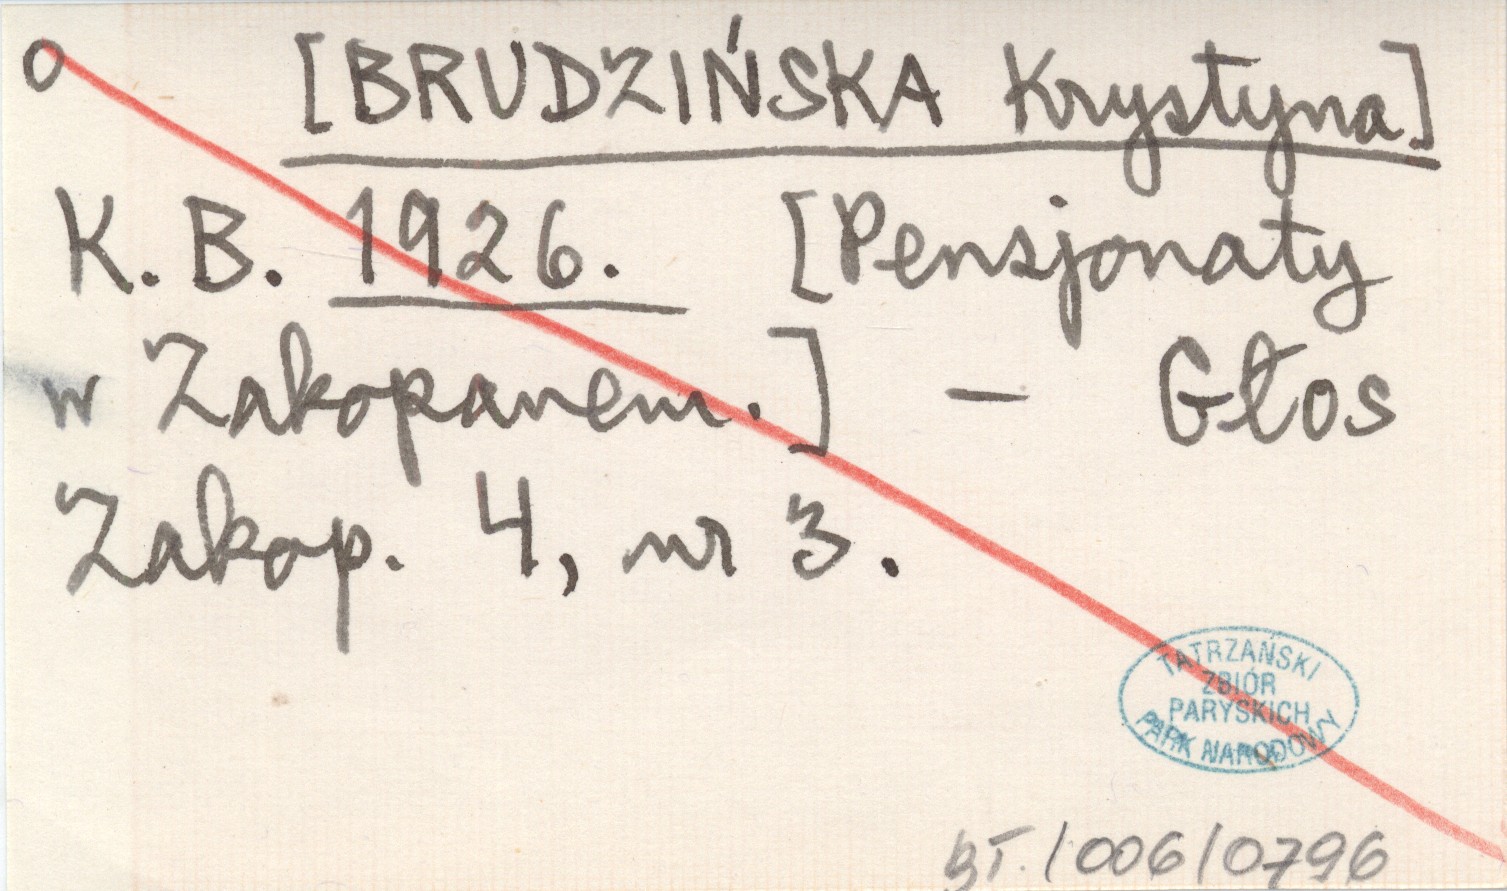 o [BRUDZIŃSKA Krystyna]
K. B. 1926. [Pensjonaty
w Zakopanem.] – Głos
Zakop. 4, nr 3.
TATRZAŃSKI
ZBIÓR
PARYSKICH
PARK NARODOWY
BT./006/0796